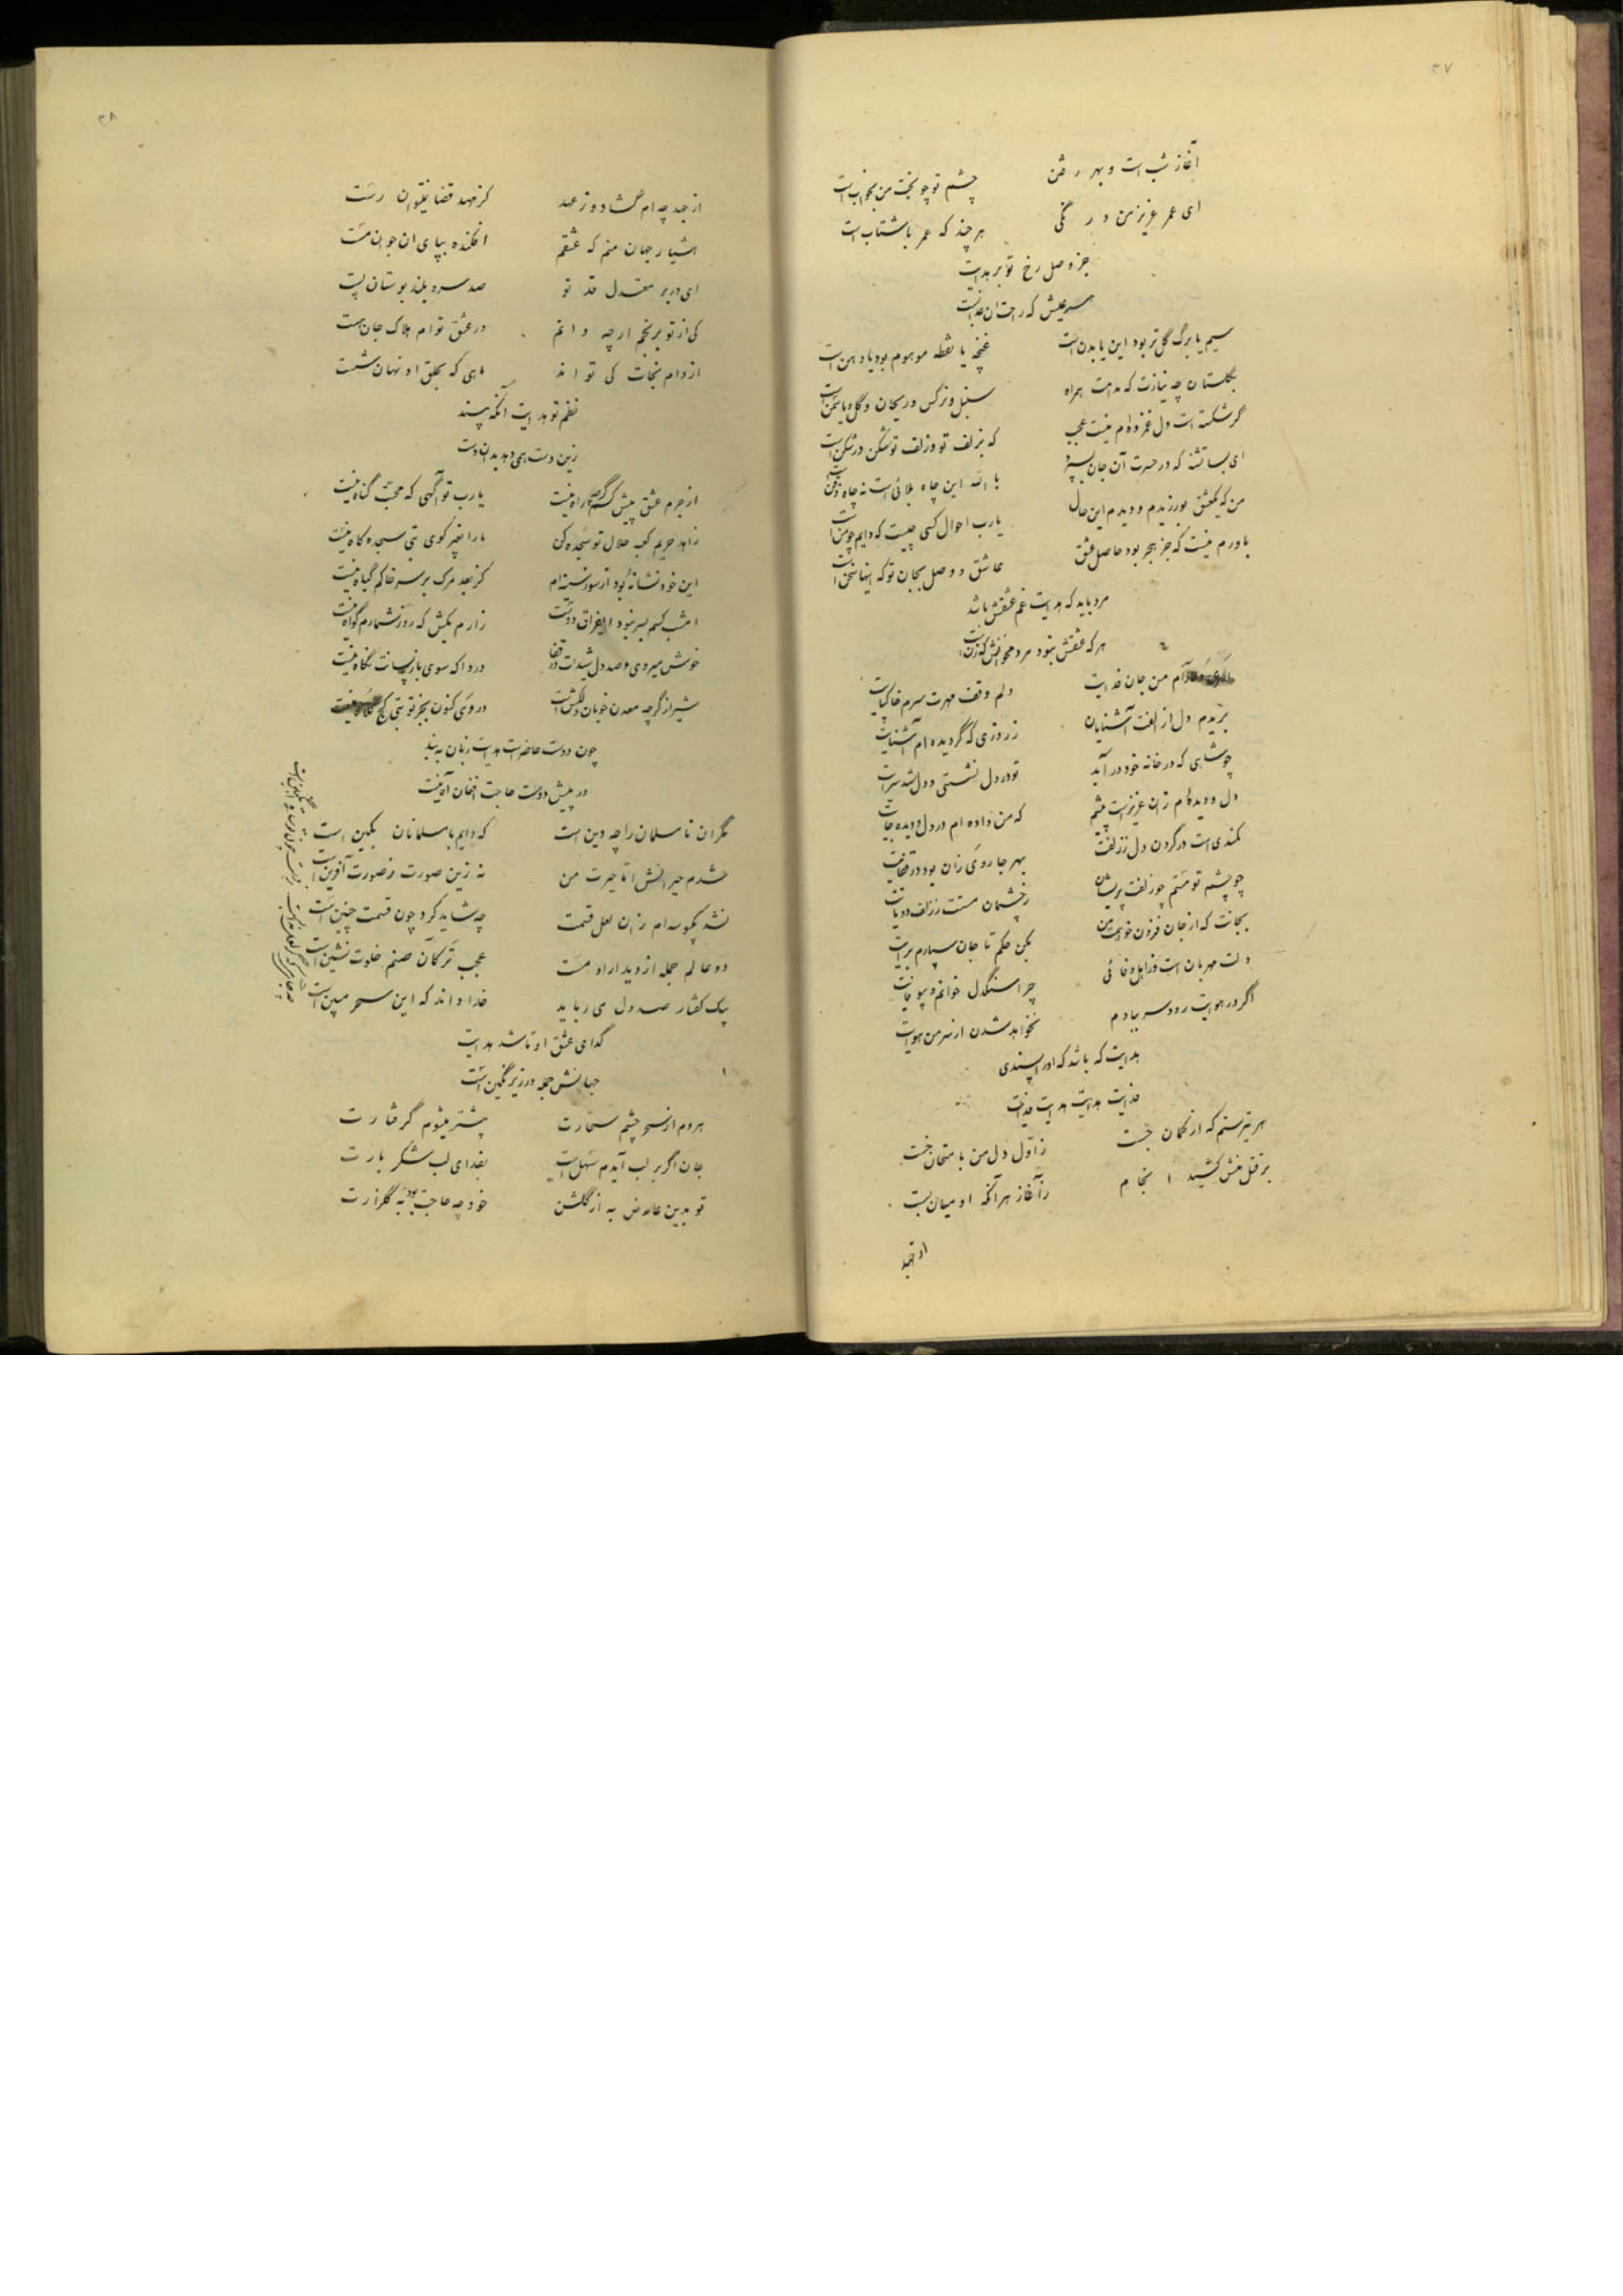 ۳۷
آغاز شب است و بهر رفتن چشم تو چو بخت من بخواب است
ای عمر عزیز من درنگی هر چند که عمر با شتاب است
جز وصل رخ تو بر هدایت
هر عیش که راحت آن عذابست
سیم یا برگ گل تر بود این یا بدن است غنچه یا نقطه موهوم بود یا دهن است
بگلستان چه نیازت که مدامت همراه سنبل و نرگس و ریحان و گل و یاسمن است
گر شکسته است دل غمزده‌ام نیست عجب که بزلف تو و زلف تو شکن در شکن است
ای بسا تشنه که در حسرت آن جان بسپرد بالله این چاه بلائی است نه چاه ذقن است
من که یکعشق بورزیدم و دیدم این حال یارب احوال کسی چیست که دایم چو من است
باورم نیست که جز هجر بود حاصل عشق عاشق و وصل بجان تو که اینها سخن است
مرد باید که هدایت غم عشقش باشد
هر که عشقش نبود مرد مخوانش که زن است
آرام من جان فدایت دلم وقف مهرت سرم خاکپایت
بریدم دل از الفت آشنایان ز روزی که گردیده‌ام آشنایت
چو شاهی که در خانه خود درآید تو در دل نشستی و دل شد سرایت
دل و دیده‌ام زان عزیز است پیشم که من داده‌ام در دل و دیده جایت
کمندی است در گردن دل ز زلفت بهر جا روی زان بود در قفایت
چو چشم تو مستم چو زلفت پریشان ز چشمان مستت ز زلف دوتایت
بجانت که از جان فزون خواهمت من بکن حکم تا جان سپارم برایت
دلت مهربان است و ز اهل وفائی چرا سنگدل خوانم و بیوفایت
اگر در هوایت رود سر ببادم نخواهد شدن از سر من هوایت
هدایت که باشد که او را پسندی
فدایت هدایت هدایت فدایت
هر تیر ستم که از کمان جست ز اول دل من بامتحان خست
بر قتل منش کشید انجام ز آغاز هر آنکه او میان بست
از جد
۳۸
از جد چه‌ام گشاد و ز عهد کز عهد قضا نیتوان رست
هشیار جهان منم که عشقم افکنده بپای آن جوان مست
ای در بر معتدل قد تو صد سرو بلند بوستان پست
کی از تو برنجم ار چه دانم در عشق توام هلاک جان هست
از دام نجات کی تواند ماهی که بحلق او نهان شست
نظم تو هدایت آنکه بیند
زین دست همی دهد بدان دست
از جرم عشق پیش کسم گرچه راه نیست یارب تو آگهی که محبت گناه نیست
زاهد حریم کعبه حلال تو سجده کن ما را بغیر کوی بتی سجده‌گاه نیست
این خود نشانه بود از سوز سینه‌ام کز بعد مرگ بر سر خاکم گیاه نیست
امشب کسم بسر نبود از فراق دوست زارم بکش که روز شمارم گواه نیست
خوش میروی و صد دل شیدات در قفا دردا که سوی بازپسانت نگاه نیست
شیراز گرچه معدن خوبان دلکش است در وی کنون بجز تو بتی کج کلاه نیست
چون دوست حاضر است هدایت زبان ببند
در پیش دوست حاجت افغان و آه نیست
نگران نامسلمان را چه دین است که دایم با مسلمانان بکین است
شدم حیرانش اما حیرت من نه زین صورت ز صورت آفرین است
نشد یکبوسه‌ام زان لعل قسمت چه شاید کرد چون قسمت چنین است
دو عالم جمله از دیدار او مست عجب تر کان صنم خلوت نشین است
بیک گفتار صد دل می رباید خدا داند که این سحر مبین است
گدای عشق او تا شد هدایت
جهانش جمله در زیر نگین است
هر دم از سحر چشم سحارت بیشتر میشوم گرفتارت
جان اگر بر لب آیدم سهل است بفدای لب شکر بارت
تو بدین عارض به از گلشن خود چه حاجت بود به گلزارت